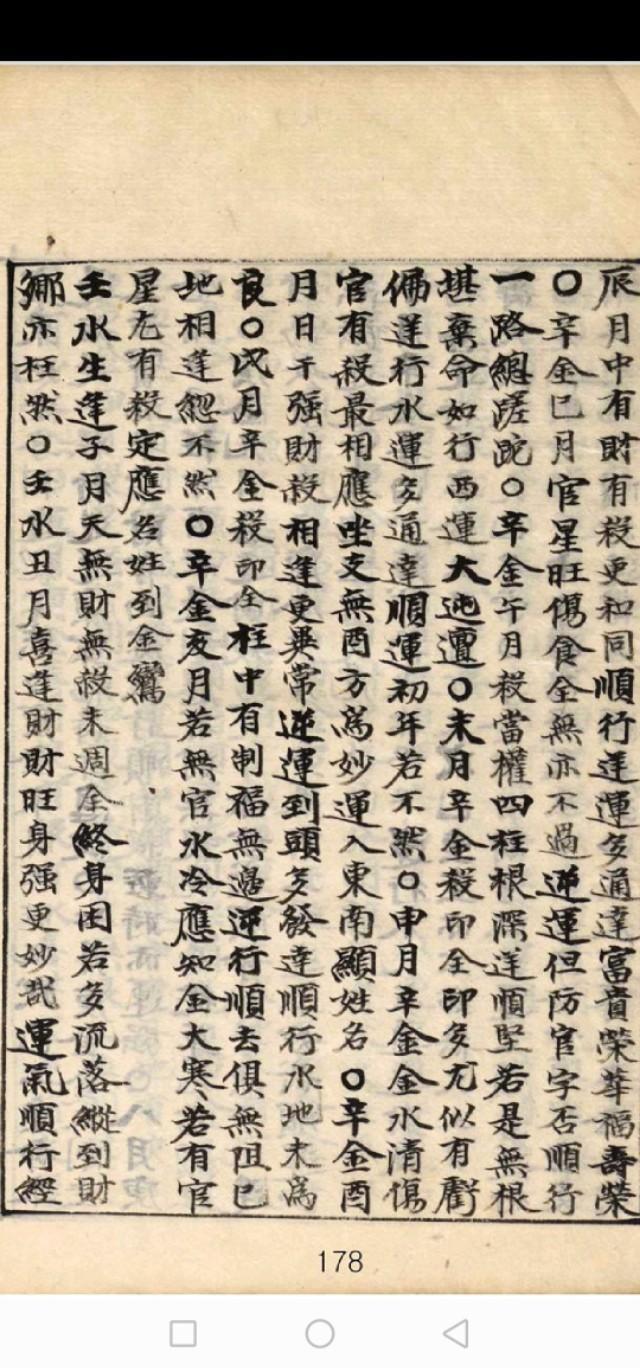 辰月中有財有殺更和同順行逆運多通達富貴榮華福壽榮
〇辛金巳月官星旺傷食全無亦不過逆運但防官字否順行
一路總蹉跎〇辛金午月殺當權四柱根深逆順堅若是無根
堪棄命如行西運大迍邅〇未月辛金殺印全印多尤似有虧
偏逆行水運多通達順運初年若不然〇申月辛金金水清傷
官有殺最相應坐支無酉方為妙運入東南顯姓名〇辛金酉
月日干强財殺相逢更異常逆運到頭多發達順行水地未為
良〇戌月辛金殺印全柱中有制福無邊逆行順去俱無阻巳
地相逢緫不然〇辛金亥月若無官水冷應知金大寒若有官
星尢有殺定應名姓到金鸞
壬水生逢子月天無財無殺未週全終身困若多流落縱到財
鄉亦枉然〇壬水丑月喜逢財財旺身强更妙哉運氣順行經
178